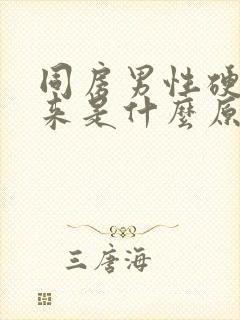 同房男性硬
来是什麼原
三唐海